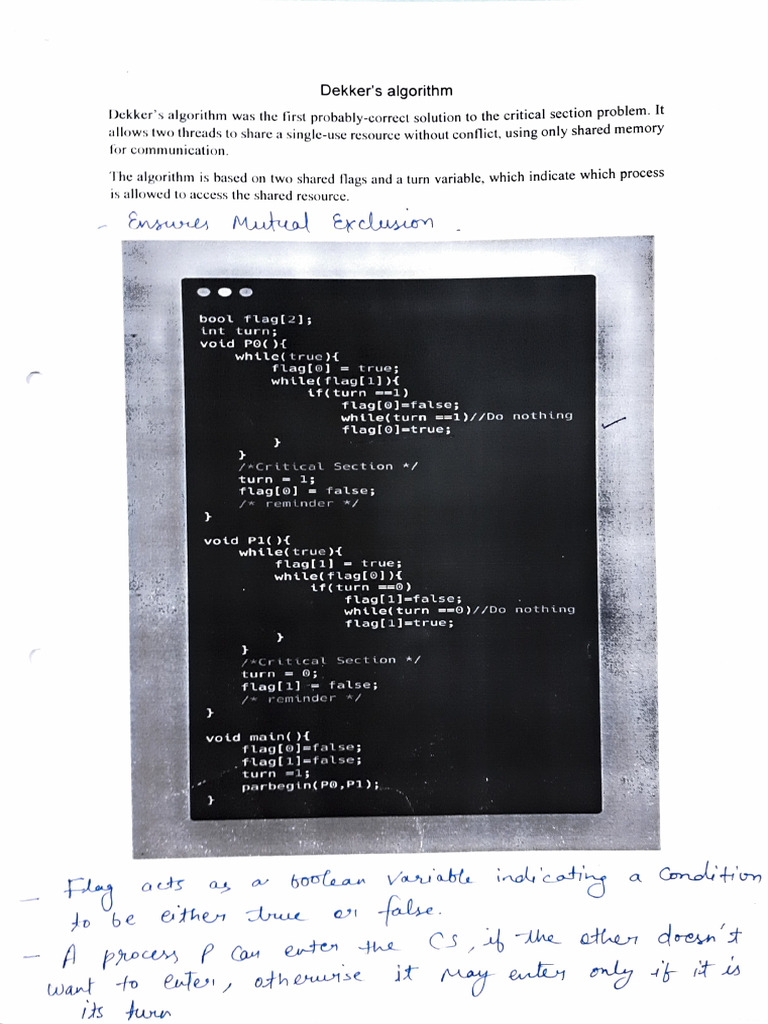 Dekker's algorithm
Dekker's algorithm was the first probably-correct solution to the critical section problem. It
allows two threads to share a single-use resource without conflict, using only shared memory
for communication.
The algorithm is based on two shared flags and a turn variable, which indicate which process
is allowed to access the shared resource.
- Ensures Mutual Exclusion.
bool flag[2];
int turn;
void P0(){
while(true){
flag[0] = true;
while(flag[1]){
if(turn ==1)
flag[0]=false;
while(turn ==1)//Do nothing
flag[0]=true;
}
}
/*Critical Section */
turn = 1;
flag[0] = false;
/* reminder */
}
void P1(){
while(true){
flag[1] = true;
while(flag[0]){
if(turn ==0)
flag[1]=false;
while(turn ==0)//Do nothing
flag[1]=true;
}
}
/*Critical Section */
turn = 0;
flag[1] = false;
/* reminder */
}
void main(){
flag[0]=false;
flag[1]=false;
turn =1;
parbegin(P0,P1);
}
- Flag acts as a boolean variable indicating a condition
to be either true or false.
- A process P can enter the CS, if the other doesn't
want to enter, otherwise it may enter only if it is
its turn